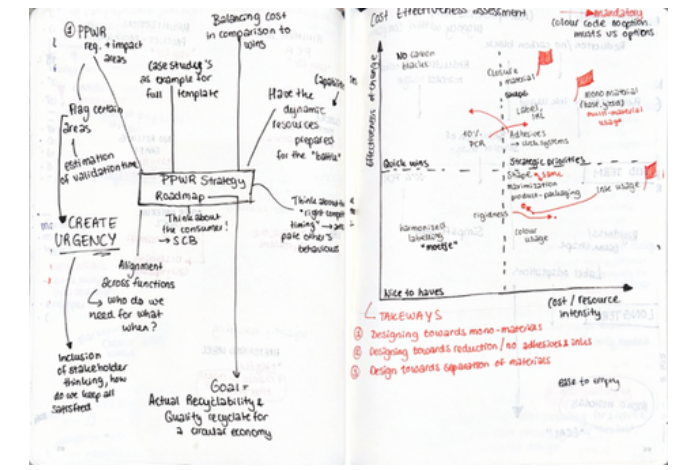 ① PPWR
req. + impact
areas
Balancing cost
in comparison to
wins
Case Study's
as example for
full template
Capabilities
Have the
dynamic
resources
prepared
for the "battle"
Flag certain
areas
estimation
of validation time
PPWR Strategy
Roadmap
Think about
the consumer!
→ SCB
Think about the
"right
timing" →
pate other's
behaviours
CREATE
URGENCY
Alignment
across functions
who do we
need for what
when?
Inclusion
of stakeholder
thinking, how
do we keep all
satisfied
Goal =
Actual Recyclability &
Quality recyclate for
a circular economy
Cost Effectiveness assessment
→ mandatory
colour code no option.
musts vs options
Effectiveness of change
No carbon
blacks
Closure
material
shape
Mono material
multi-material
usage
Label
IML
40%
PCR
Adhesives
→ systems
Quick wins
Strategic priorities
Shape + same
maximization
product-packaging
Ink usage
rigidness
colour
usage
harmonized
labelling
Nice to haves
Cost / resource
intensity
TAKEWAYS
① Designing towards mono-materials
② Designing towards reduction / no adhesives & inks
③ Design towards separation of materials
ease to empty